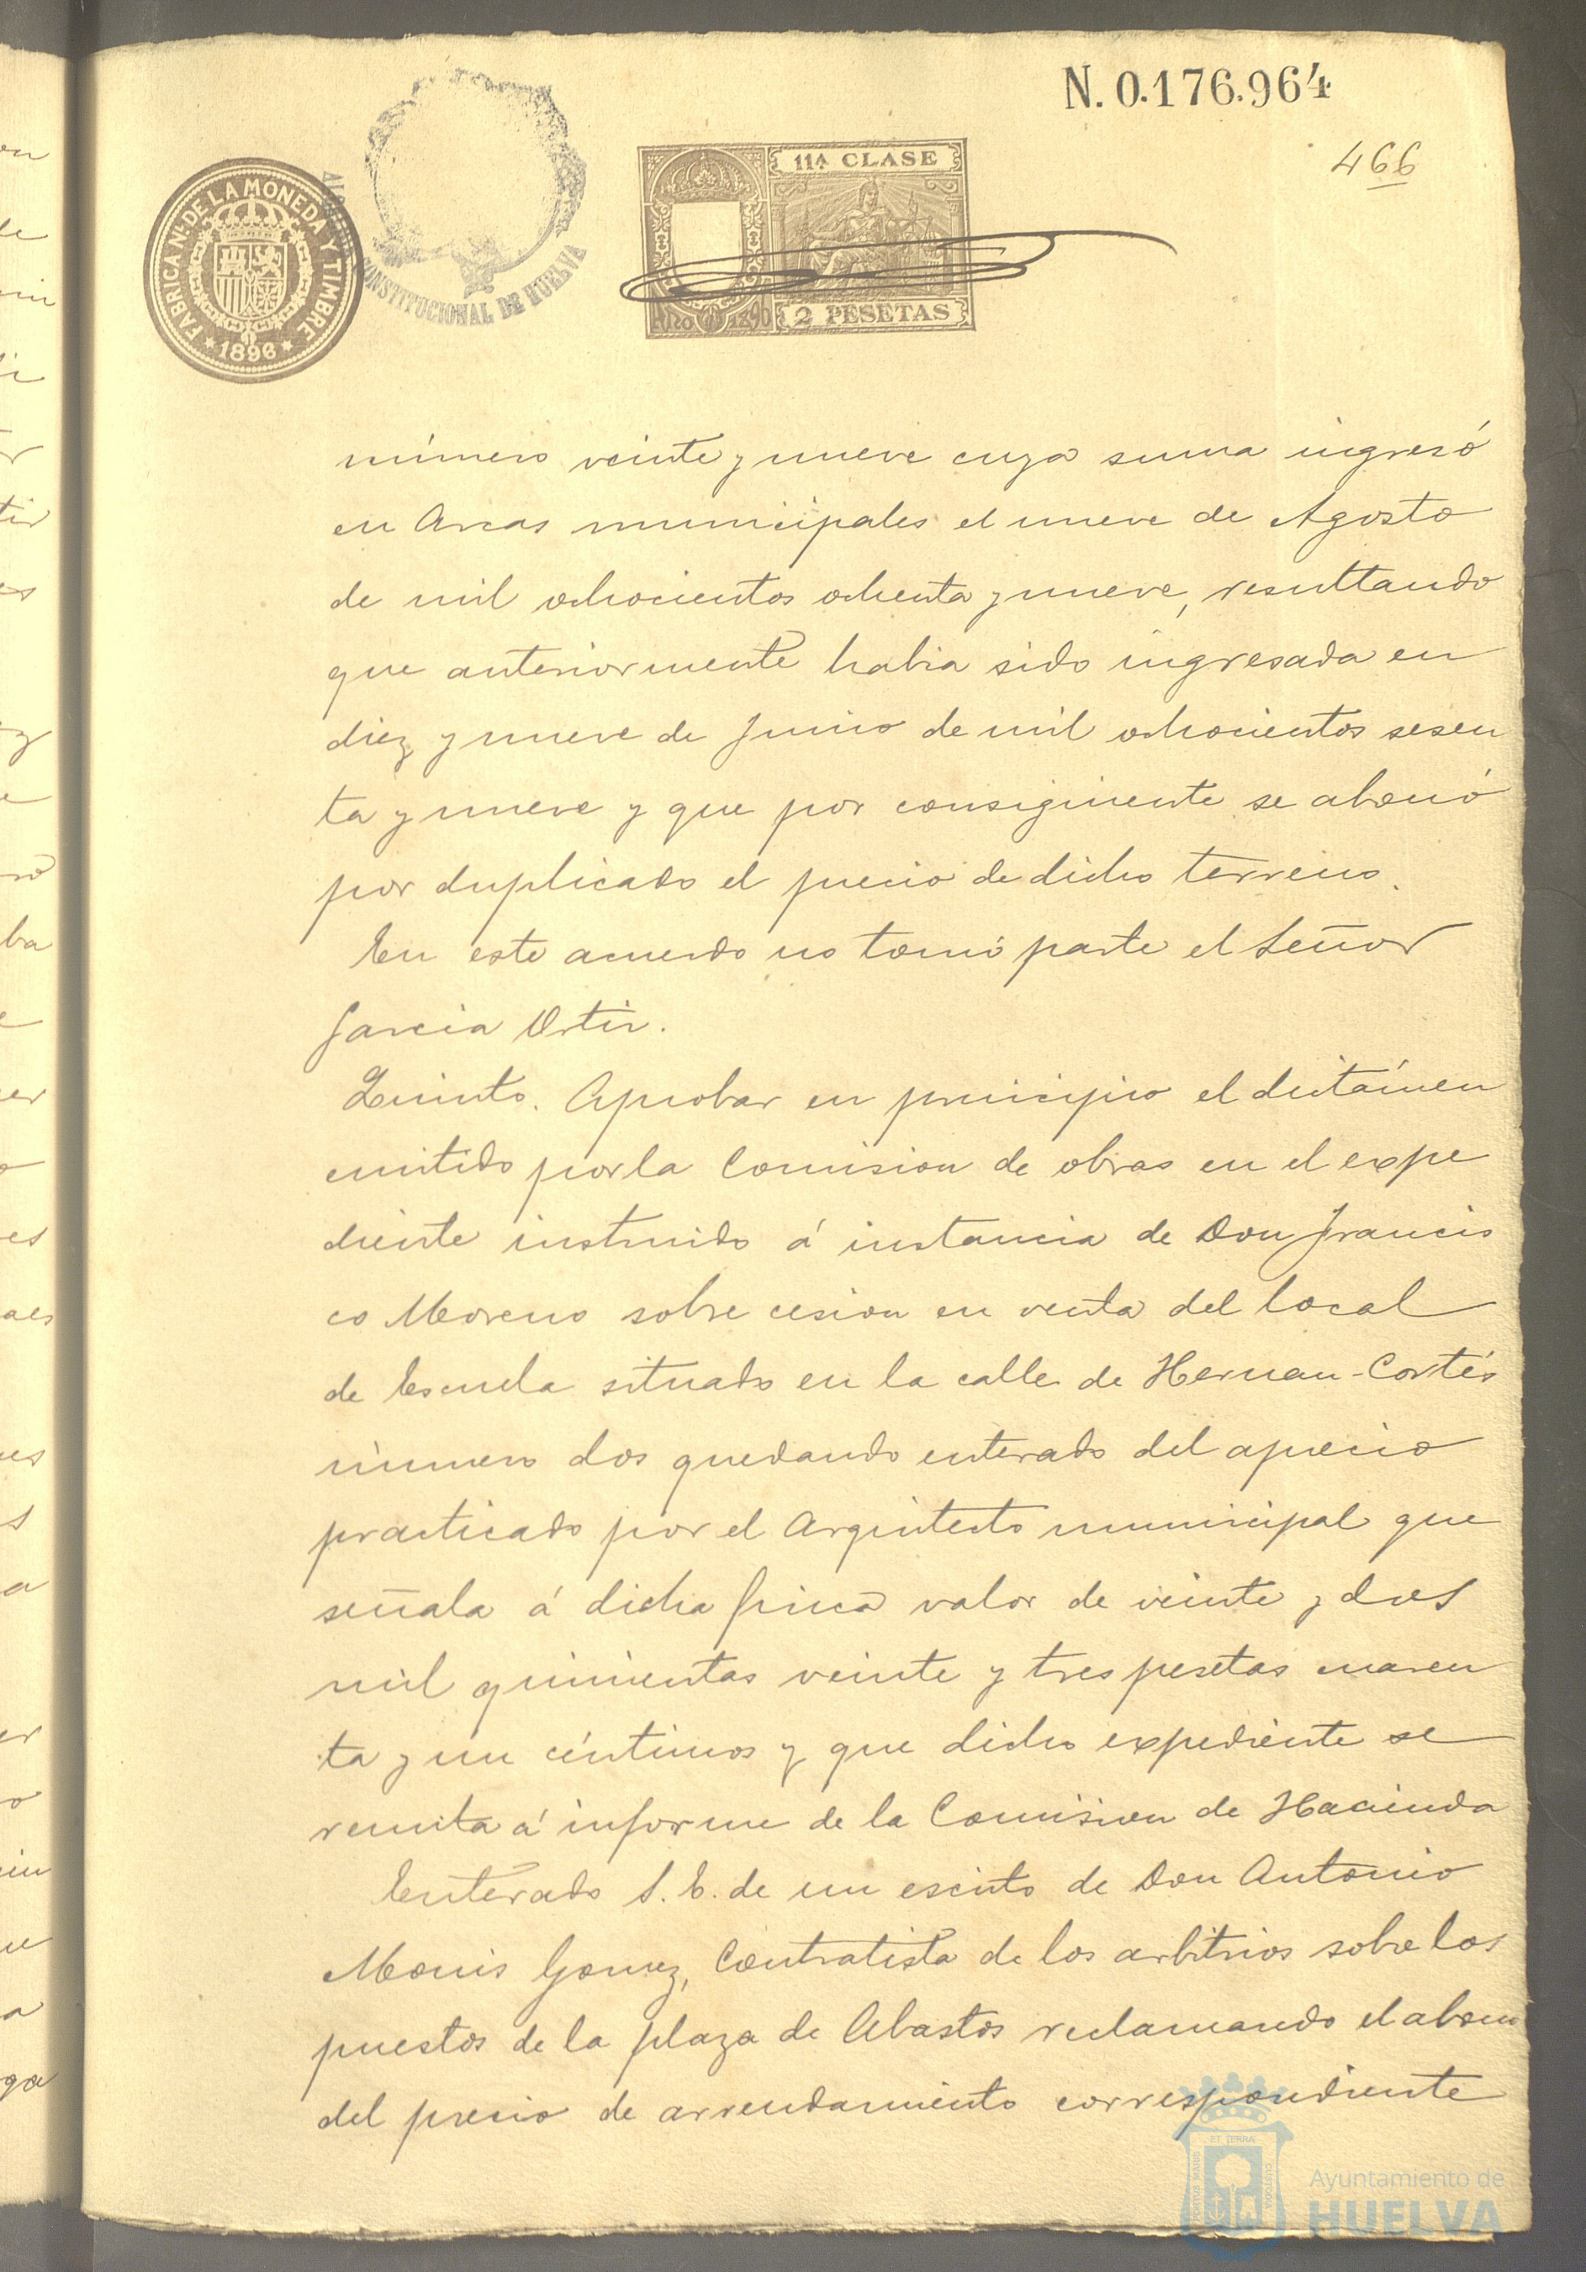 N. 0.176.964
466
11ª CLASE
FABRICA Nˡ DE LA MONEDA Y TIMBRE
1896
CONSTITUCIONAL DE HUELVA
2 PESETAS
número veinte y nueve cuya suma ingresó
en Arcas municipales el nueve de Agosto
de mil ochocientos ochenta y nueve, resultando
que anteriormente habia sido ingresada en
diez y nueve de Junio de mil ochocientos sesen
ta y nueve y que por consiguiente se abonó
por duplicado el precio de dicho terreno.
En este acuerdo no tomó parte el Señor
Garcia Ortiz.
Quinto. Aprobar en principio el dictámen
emitido por la Comision de obras en el expe
diente instruido á instancia de Don Francis
co Moreno sobre cesion en venta del local
de Escuela situado en la calle de Hernan-Cortés
número dos quedando enterado del aprecio
practicado por el Arquitecto municipal que
señala á dicha finca valor de veinte y dos
mil quinientas veinte y tres pesetas cuaren
ta y un céntimos y que dicho expediente se
remita á informe de la Comision de Hacienda
Enterado S. E. de un escrito de Don Antonio
Monis Gomez, Contratista de los arbitrios sobre los
puestos de la plaza de Abastos reclamando el abono
del precio de arrendamiento correspondiente
Ayuntamiento de
HUELVA